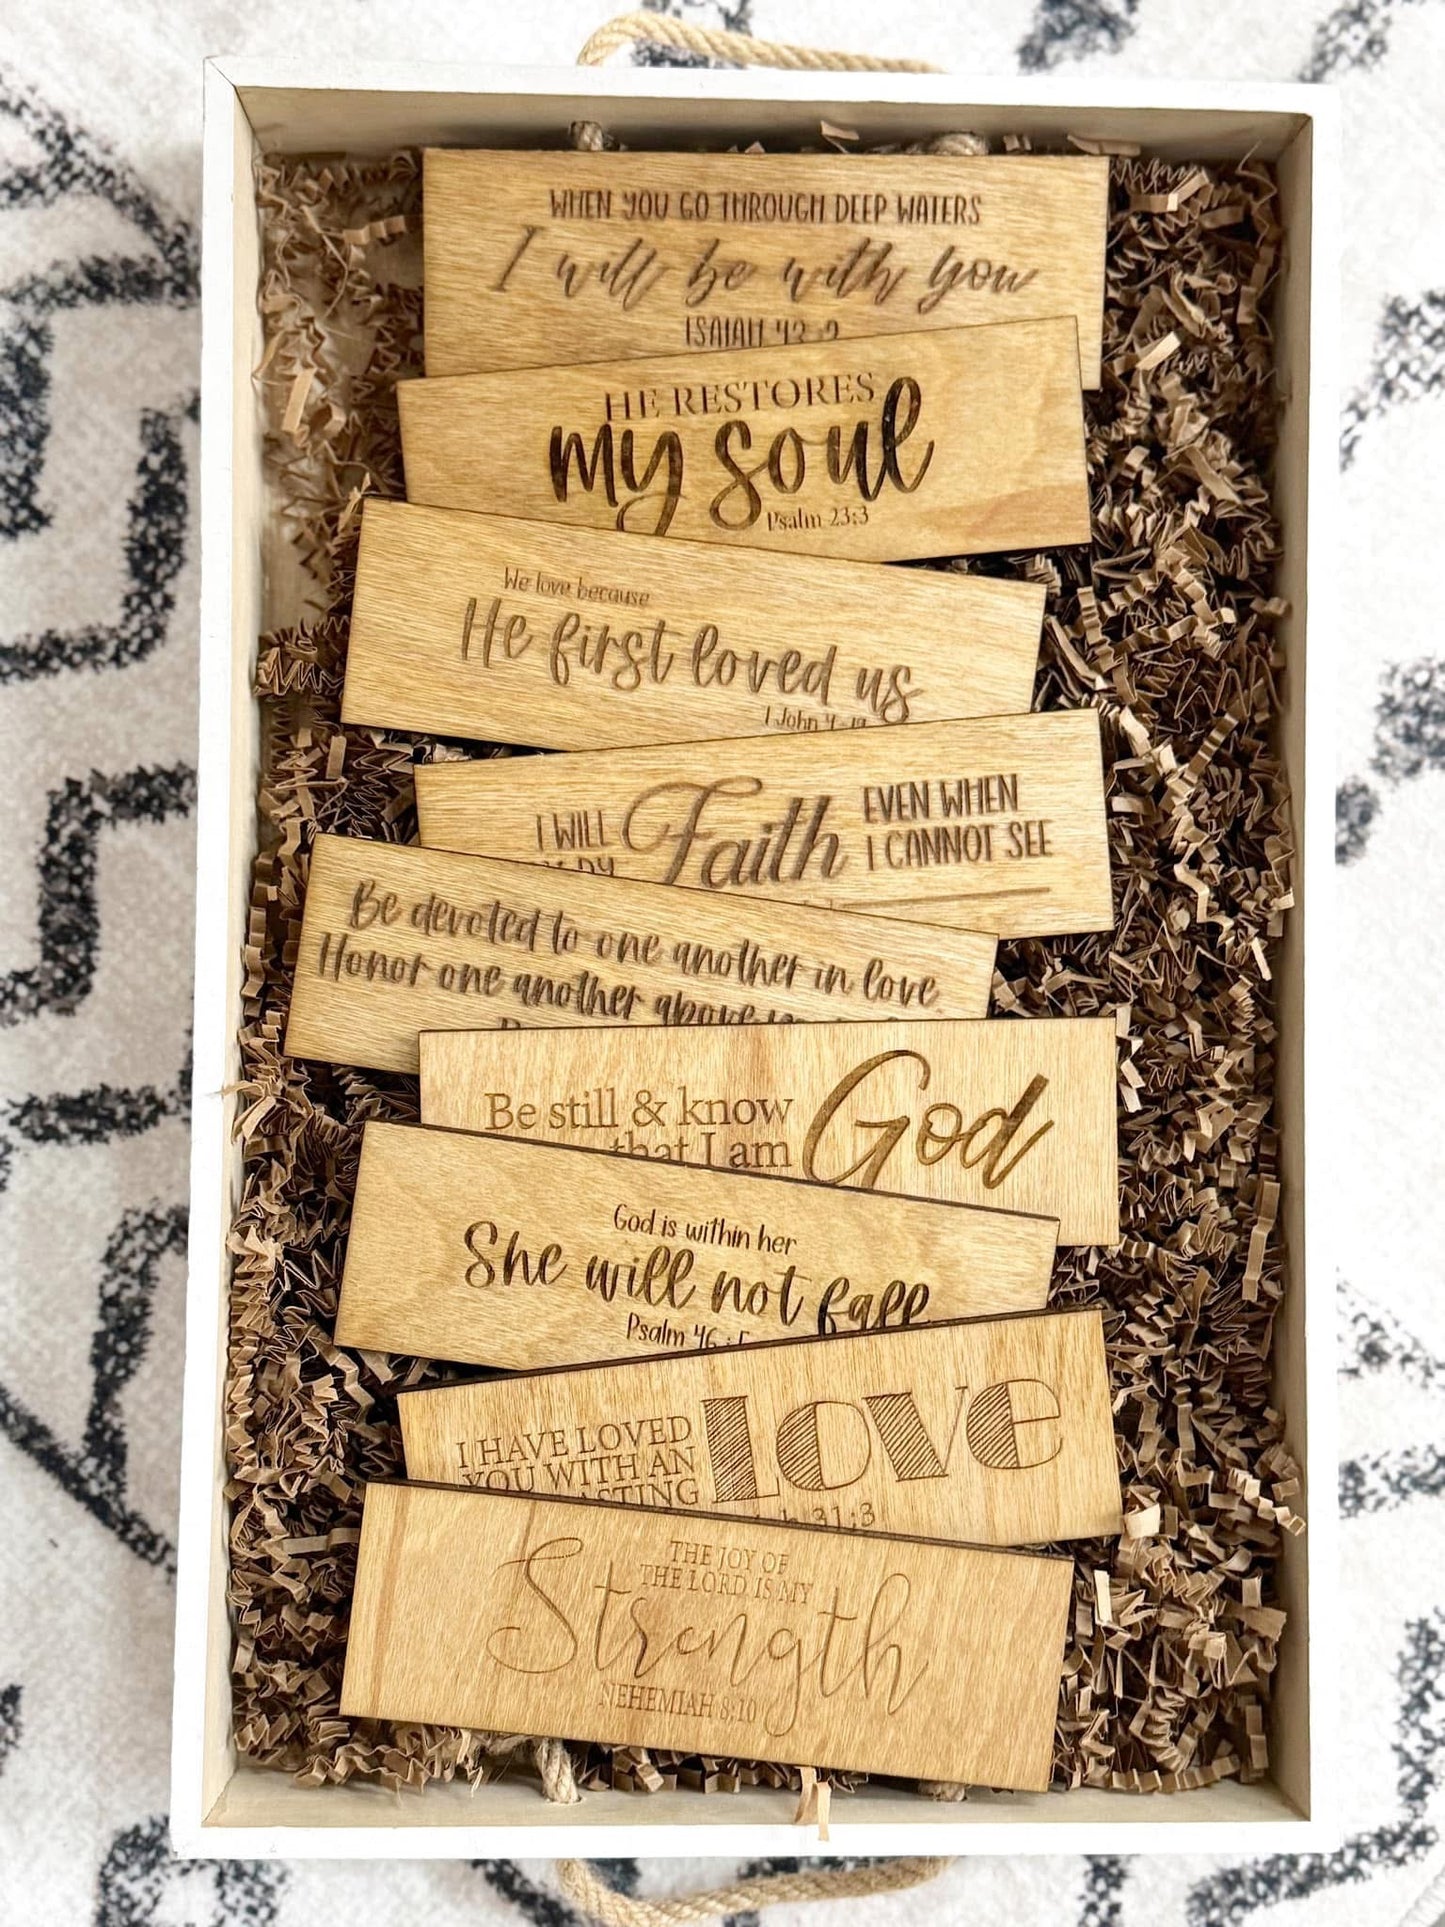 WHEN YOU GO THROUGH DEEP WATERS
I will be with you
ISAIAH 43:2
HE RESTORES
my soul
Psalm 23:3
We love because
He first loved us
1 John 4:19
I WILL Faith EVEN WHEN
I CANNOT SEE
Be devoted to one another in love.
Honor one another above
Be still & know
that I am God
God is within her
She will not fall
Psalm 46:5
I HAVE LOVED
YOU WITH AN
LOVE
31:3
THE JOY OF
THE LORD IS MY
Strength
NEHEMIAH 8:10